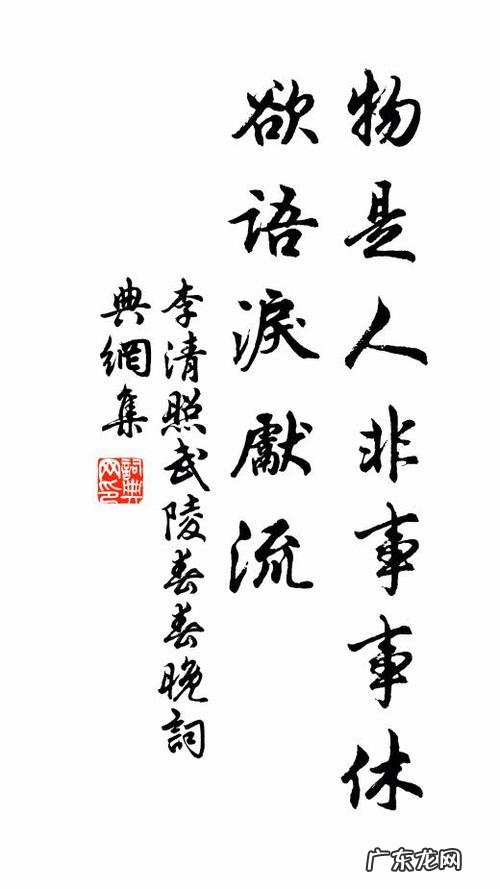 物是人非事事休
欲語淚獻流
李清照武陵春春晚詞
典網集
詞典
网印
广东龙网